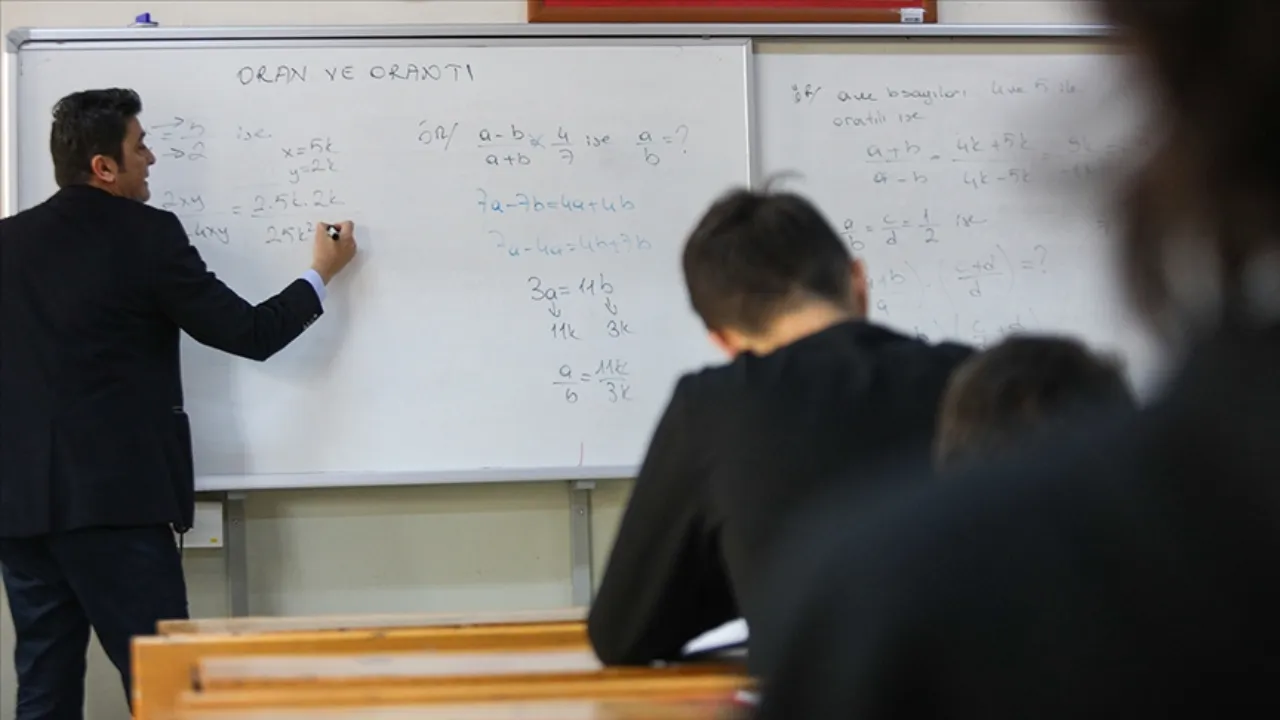 ORAN VE ORANTI
ise
x=5k
y=2k
2xy = 2.5k.2k
4xy 25k²
ÖR/ a-b 4 ise a =?
a+b 7 b
7a-7b=4a+4b
7a-4a=4b+7b
3a=11b
11k 3k
a = 11k
b 3k
ÖR/ a ve b sayıları 4 ve 5 ile
oratılı ise
a+b = 4k+5k = 9k
a-b 4k-5k
a = c = 1 ise
b d 2
a+b . (c+d) =?
a d